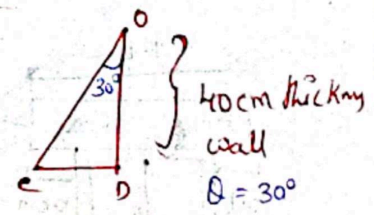 O
30°
40cm thickny
wall
C D
θ = 30°